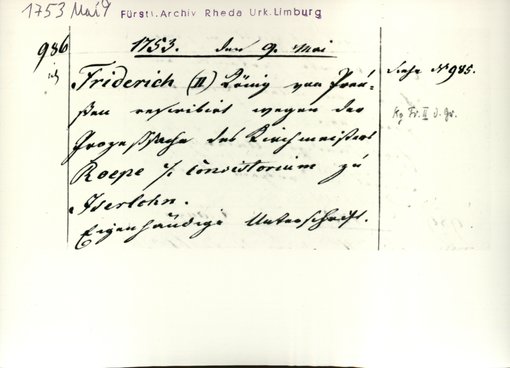 1753 Mai 9 Fürstl. Archiv Rheda Urk. Limburg
986 1753. den 9. Mai
Friderich (II) König von Preu- Siehe № 985.
ßen rescribirt wegen der Kg Fr. II d. Gr.
Prozeßsache des Kirchmeisters
Roepe ./. Consistorium zu
Iserlohn.
Eigenhändige Unterschrift.